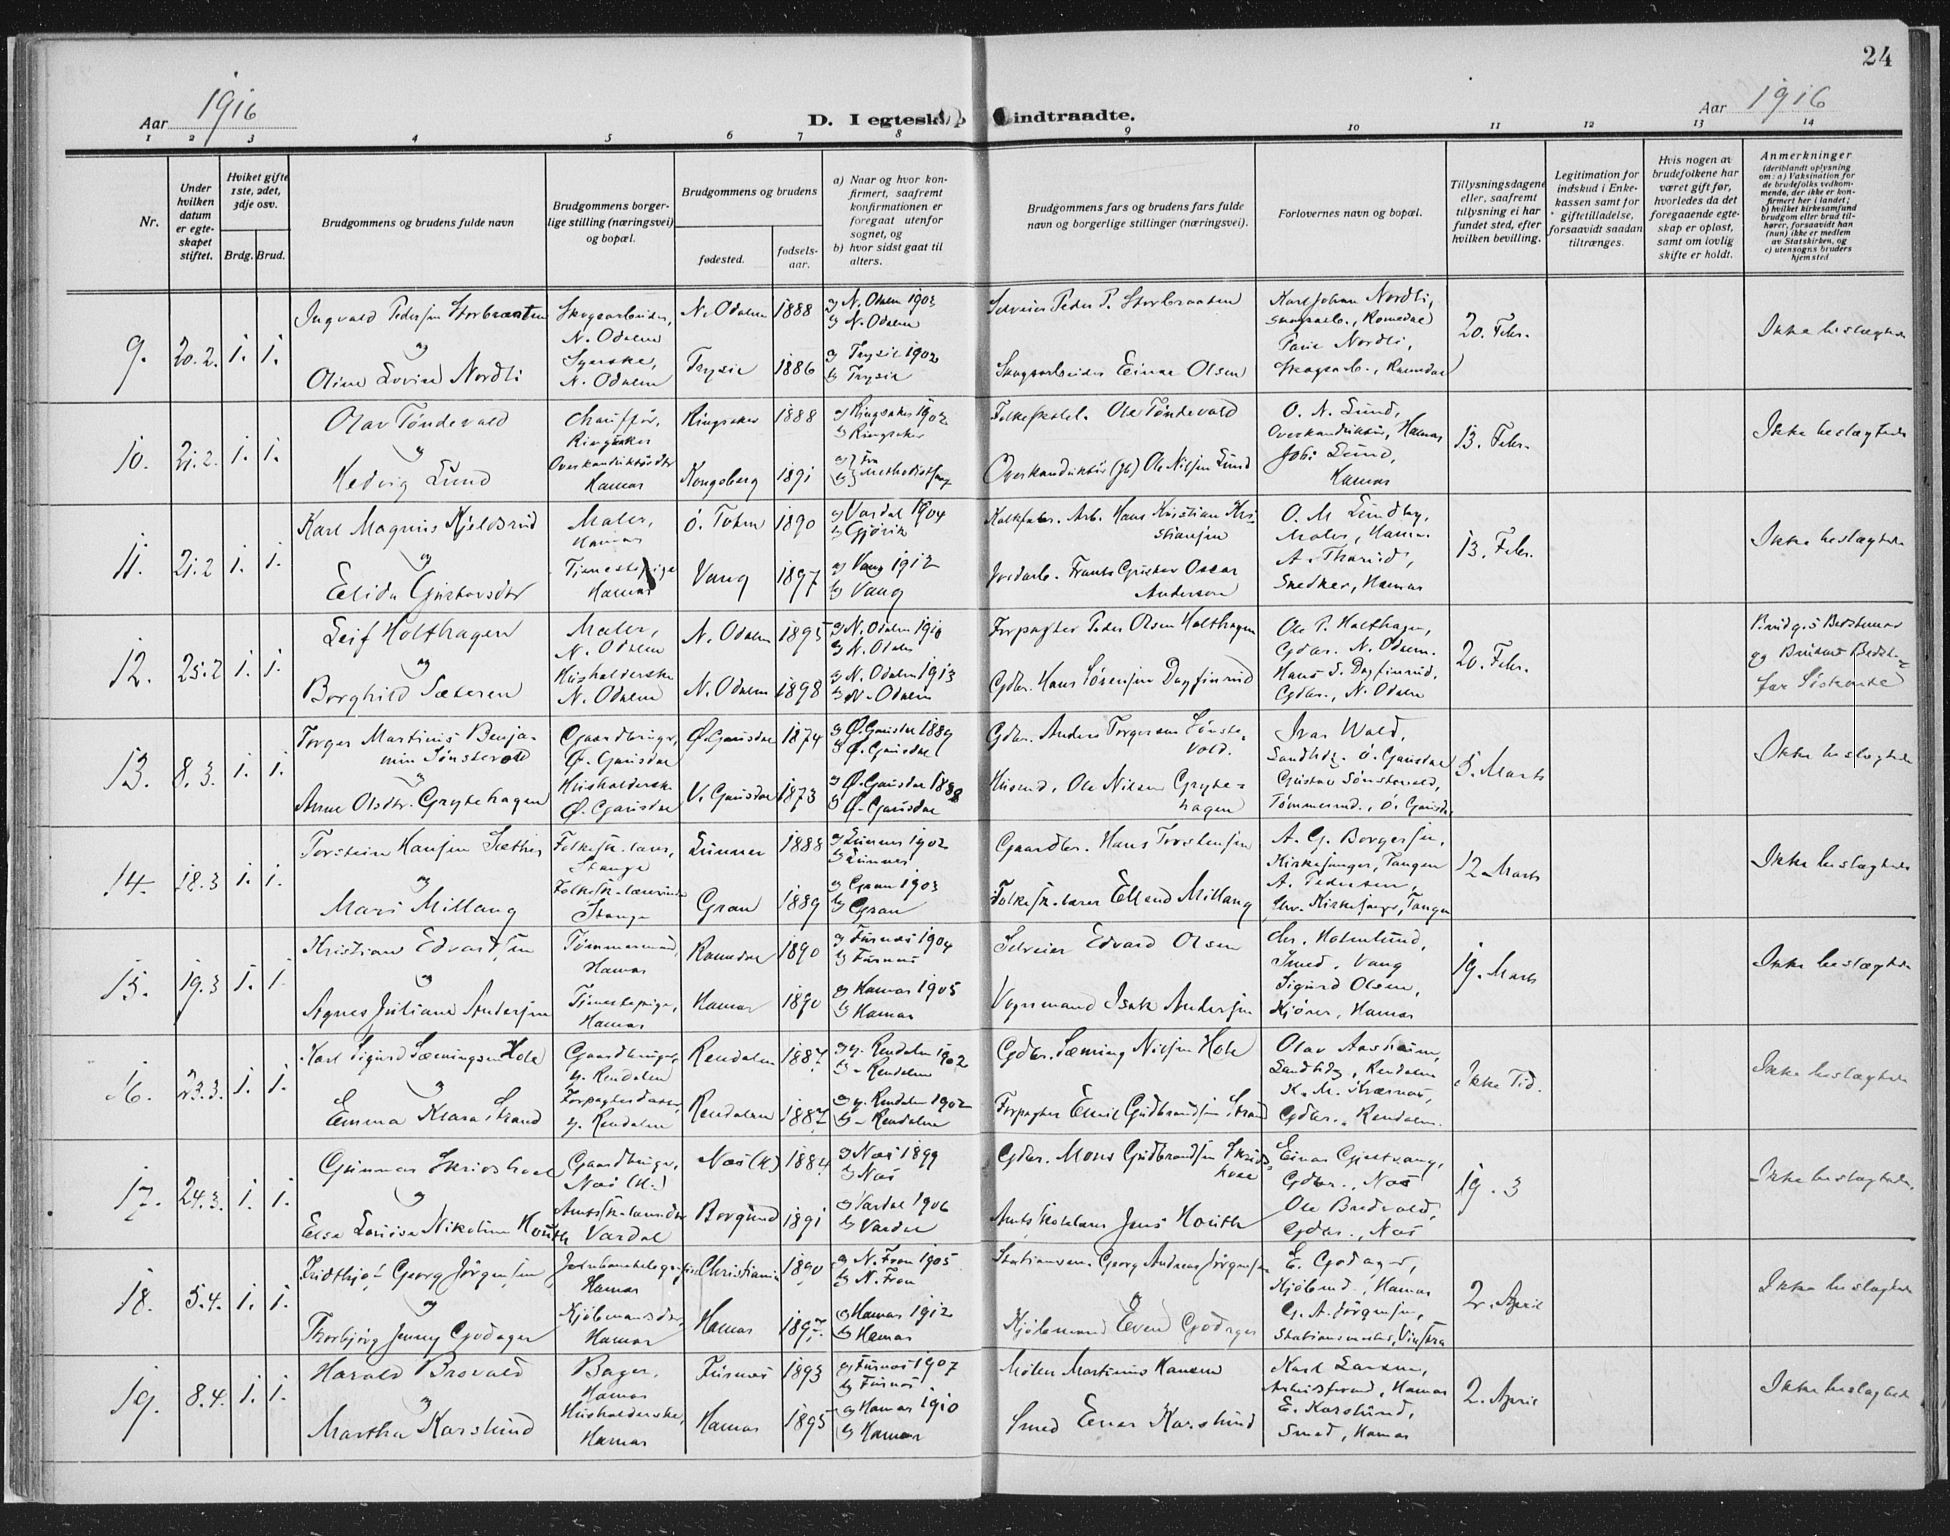 24
Aar 1916
D. I egteskap indtraadte.
Aar 1916
1 2 3 4 5 6 7 8 9 10 11 12 13 14
Nr.
Under hvilken datum er egteskapet stiftet.
Hviket gifte 1ste, 2det, 3dje osv.
Brdg. Brud.
Brudgommens og brudens fulde navn
Brudgommens borgerlige stilling (næringsvei) og bopæl.
Brudgommens og brudens
fødested.
fødselsaar.
a) Naar og hvor konfirmert, saafremt konfirmationen er foregaat utenfor sognet, og
b) hvor sidst gaat til alters.
Brudgommens fars og brudens fars fulde navn og borgerlige stillinger (næringsvei).
Forlovernes navn og bopæl.
Tillysningsdagene eller, saafremt tillysning ei har fundet sted, efter hvilken bevilling.
Legitimation for indskud i Enkekassen samt for giftetilladelse, forsaavidt saadan tiltrænges.
Hvis nogen av brudefolkene har været gift før, hvorledes da det foregaaende egteskap er opløst, samt om lovlig skifte er holdt.
Anmerkninger
(deriblandt oplysning om: a) Vaksination for de brudefolks vedkommende, der ikke er konfirmert her i landet; b) hvilket kirkesamfund brudgom eller brud tilhører, forsaavidt han (hun) ikke er medlem av Statskirken, og c) utensogns bruders hjemsted
9. 20.2. 1. 1.
Ingvald Pedersen Storbraaten
Skogsarbeider, N. Odalen
N. Odalen 1888
a) N. Odalen 1903
b) N. Odalen
Selveier Peder P. Storbraaten
Karl Johan Nordli, Skogsarb., Romedal
20. Febr.
Ikke beslægtede
og
Oline Lovise Nordli
Syerske, N. Odalen
Trysil 1886
a) Trysil 1902
b) Trysil
Skogsarbeider Einar Olsen
Nordli, Skogsarb., Romedal
10. 21.2. 1. 1.
Olav Tøndevold
Chauffør, Ringsaker
Ringsaker 1888
a) Ringsaker 1903
b) Ringsaker
Ole Tøndevold
O. N. Lund, Overkonduktør, Hamar
13. Febr.
Ikke beslægtede
og
Hedvig Lund
Overkonduktørdtr Hamar
Kongsberg 1891
a) b) Fra Methodistsamf
Overkonduktør Ole Nilsen Lund
Lund, Hamar
11. 21.2 1. 1.
Karl Magnus Kjeldsrud
Maler, Hamar
Ø. Toten 1890
a) Vardal 1904
b) Gjøvik
Kalkfabr. Arb. Hans Kristian Kristiansen
O. M. Lundby, Maler, Hamar
13. Febr.
Ikke beslægtede
og
Elida Gustavsdtr
Tjenestepige Hamar
Vang 1897
a) Vang 1912
b) Vang
Jordarb. Frants Gustav Oscar Anderson
A. Thorud, Snedker, Hamar
12. 25.2 1. 1.
Leif Holthagen
Maler, N. Odalen
N. Odalen 1895
a) N. Odalen 1910
b) N. Odalen
Forpagter Peder Olsen Holthagen
Ole P. Holthagen, Gdbr. N. Odalen.
20. Febr.
Brudg.s Bestemor og Brudens Bedstefar Siskende
og
Borghild Sæteren
Husholderske N. Odalen
N. Odalen 1898
a) N. Odalen 1913
b) N. Odalen
Gdbr. Hans Sørensen Dagfinrud
Hans S. Dagfinrud, Gdbr., N. Odalen
13. 8.3. 1. 1.
Torger Martinus Benjamin Sønstevold
Gaardbruger, Ø. Gausdal
Ø. Gausdal 1874
a) Ø. Gausdal 1889
b) Ø. Gausdal
Gdbr. Anders Torgersen Sønstevold.
Ivar Wold, Landhdl. Ø. Gausdal
5. Marts
Ikke beslægtede
og
Anne Olsdtr. Grytehagen
Husholderske Ø. Gausdal
V. Gausdal 1873
a) Ø. Gausdal 1888
b) Ø. Gausdal
Husmd. Ole Nilsen Grytehagen
Gustav Sønstevold, Tømmermd., Ø. Gausdal
14. 18.3 1. 1.
Torstein Hansen Sæther
Folkesk. lærer, Stange
Lunner 1888
a) Lunner 1902
b) Lunner
Gaardbr. Hans Torstensen
A. G. Borgersen, Kirkesanger, Tangen
12. Marts
Ikke beslægtede
og
Mari Millang
Folkesk. lærerinde Stange
Gran 1889
a) Gran 1903
b) Gran
Folkesk. lærer Ellend Millang
A. Pedersen, Kirkesanger, Tangen
15. 19.3 1. 1.
Kristian Edvardsen
Tømmermand, Hamar
Romedal 1890
a) Furnes 1904
b) Furnes
Selveier Edvard Olsen
Chr. Holmlund, Smed, Vang
19. Marts
Ikke beslægtede
og
Agnes Juliane Andersen
Tjenestepige, Hamar
Hamar 1890
a) Hamar 1905
b) Hamar
Vognmand Isak Andersen
Sigurd Olsen, Kjører, Hamar
16. 23.3. 1. 1.
Karl Sigurd Sæmingsen Hole
Gaardbruger y. Rendalen
Rendalen 1887
a) y. Rendalen 1902
b) - Rendalen
Gdbr. Sæming Nilsen Hole
Olav Aasheim, Landhdl., Rendalen
Ikke Tid.
Ikke beslægtede
og
Emma Klara Strand
Forpagterdatter, y. Rendalen
Rendalen 1887
a) y. Rendalen 1902
b) - Rendalen
Forpagter Emil Gudbrandsen Strand
K. M. Kværnes, Gdbr., Rendalen.
17. 24.3. 1. 1.
Gunnar Skridshoel
Gaardbruger, Nes (H.)
Nes (H) 1884
a) Nes 1899
b) Nes
Gdbr. Mons Gudbrandsen Skridshoel
Einar Gjestvang, Gdbr., Nes
19. 3
Ikke beslægtede.
og
Else Louise Nikoline Houth
Amtssk. lærerdtr Vardal
Borgund 1891
a) Vardal 1906
b) Vardal
Amtsskolelærer Jens Houth
Ole Bredvold, Gdbr., Nes
18. 5.4. 1. 1.
Fridthjof Georg Jørgensen
Jernbanetelegrafist Hamar
Christiania 1890
a) N. Fron 1905
b) N. Fron
Stationsm. Georg Andreas Jørgensen
E. Godager, Kjøbmd., Hamar
2. April
Ikke beslægtede
og
Thorbjørg Jenny Godager
Kjøbmandsdtr, Hamar
Hamar 1897
a) Hamar 1912
b) Hamar
Kjøbmand Even Godager
G. A. Jørgensen, Stationsmester, Vinstra
19. 8.4. 1. 1.
Harald Brovold
Bager, Hamar
Furnes 1893
a) Furnes 1907
b) Furnes.
Møller Martinus Hansen
Karl Larsen, Hamar
2. April
Ikke beslægtede
og
Martha Karslund
Husholderske, Hamar
Hamar 1895
a) Hamar 1910
b) Hamar
Smed Einar Karslund
E. Karslund, Smed, Hamar